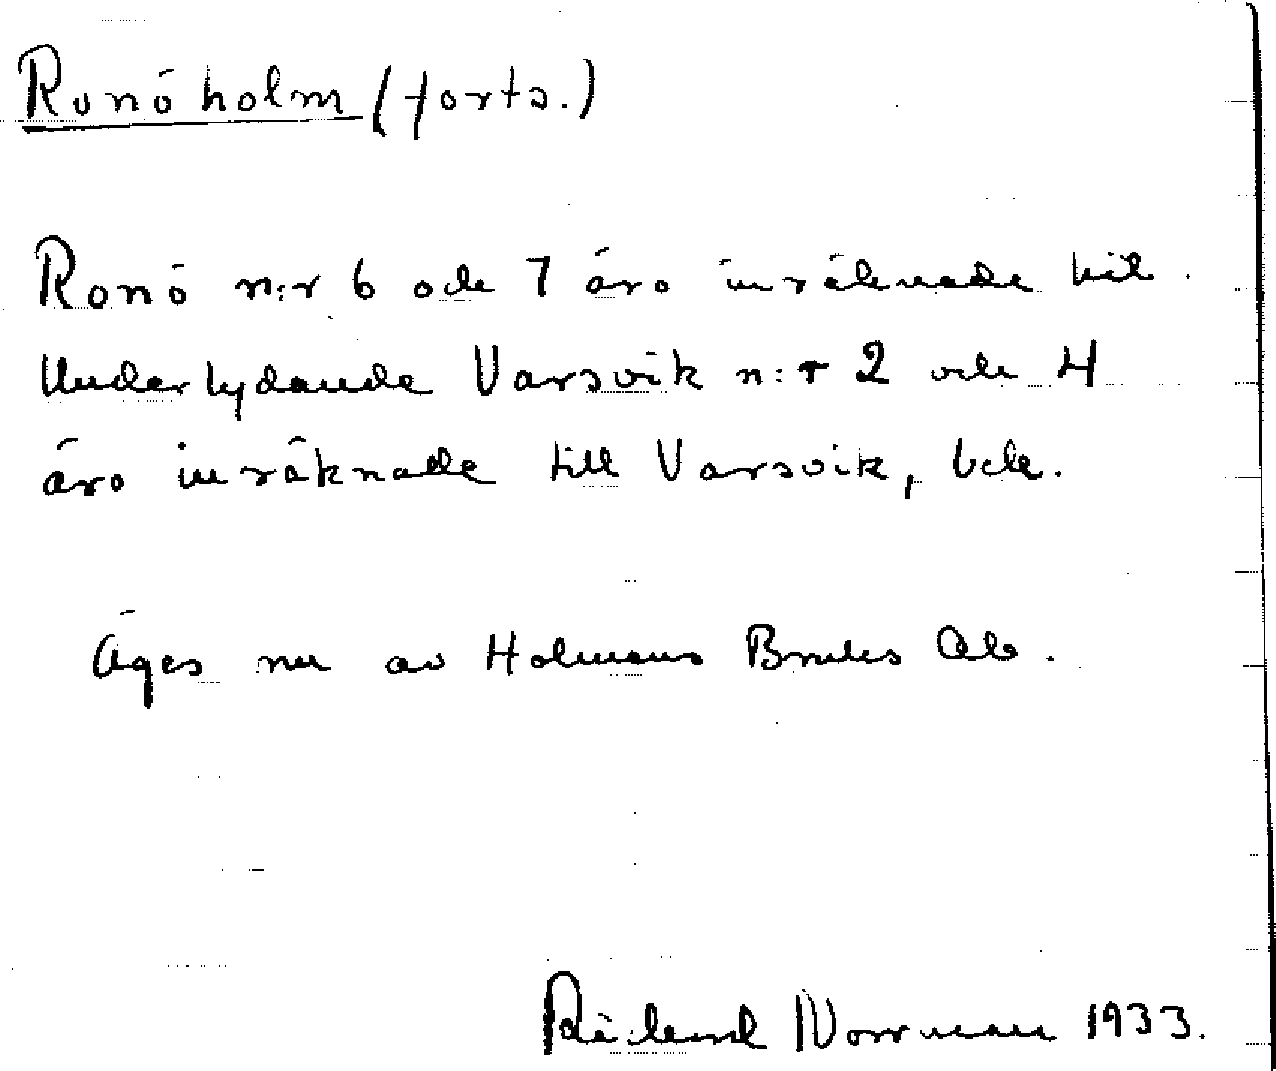 Ronö holm (forts.)
Ronö n:r 6 och 7 äro inräknade till
Underlydande Varsvik n:r 2 och 4
äro inräknade till Varsvik, bcl.
Äges nu av Holmens Bruks Ab.
Rikard Norrman 1933.